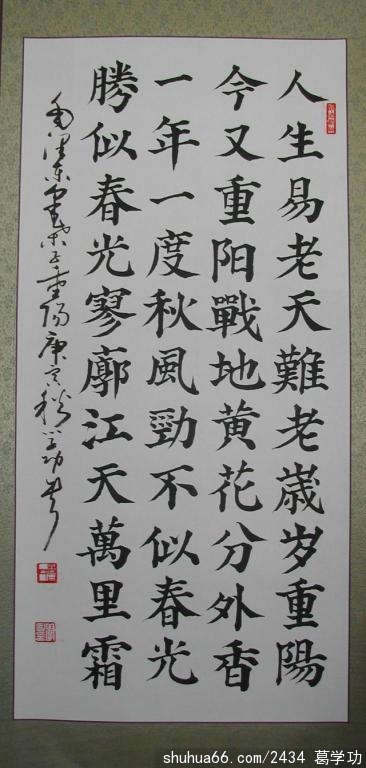 人生易老天難老歲岁重陽
今又重阳戰地黄花分外香
一年一度秋風勁不似春光
勝似春光寥廓江天萬里霜
毛泽东采桑子重陽庚寅秋学功书
shuhua66.com/2434 葛学功